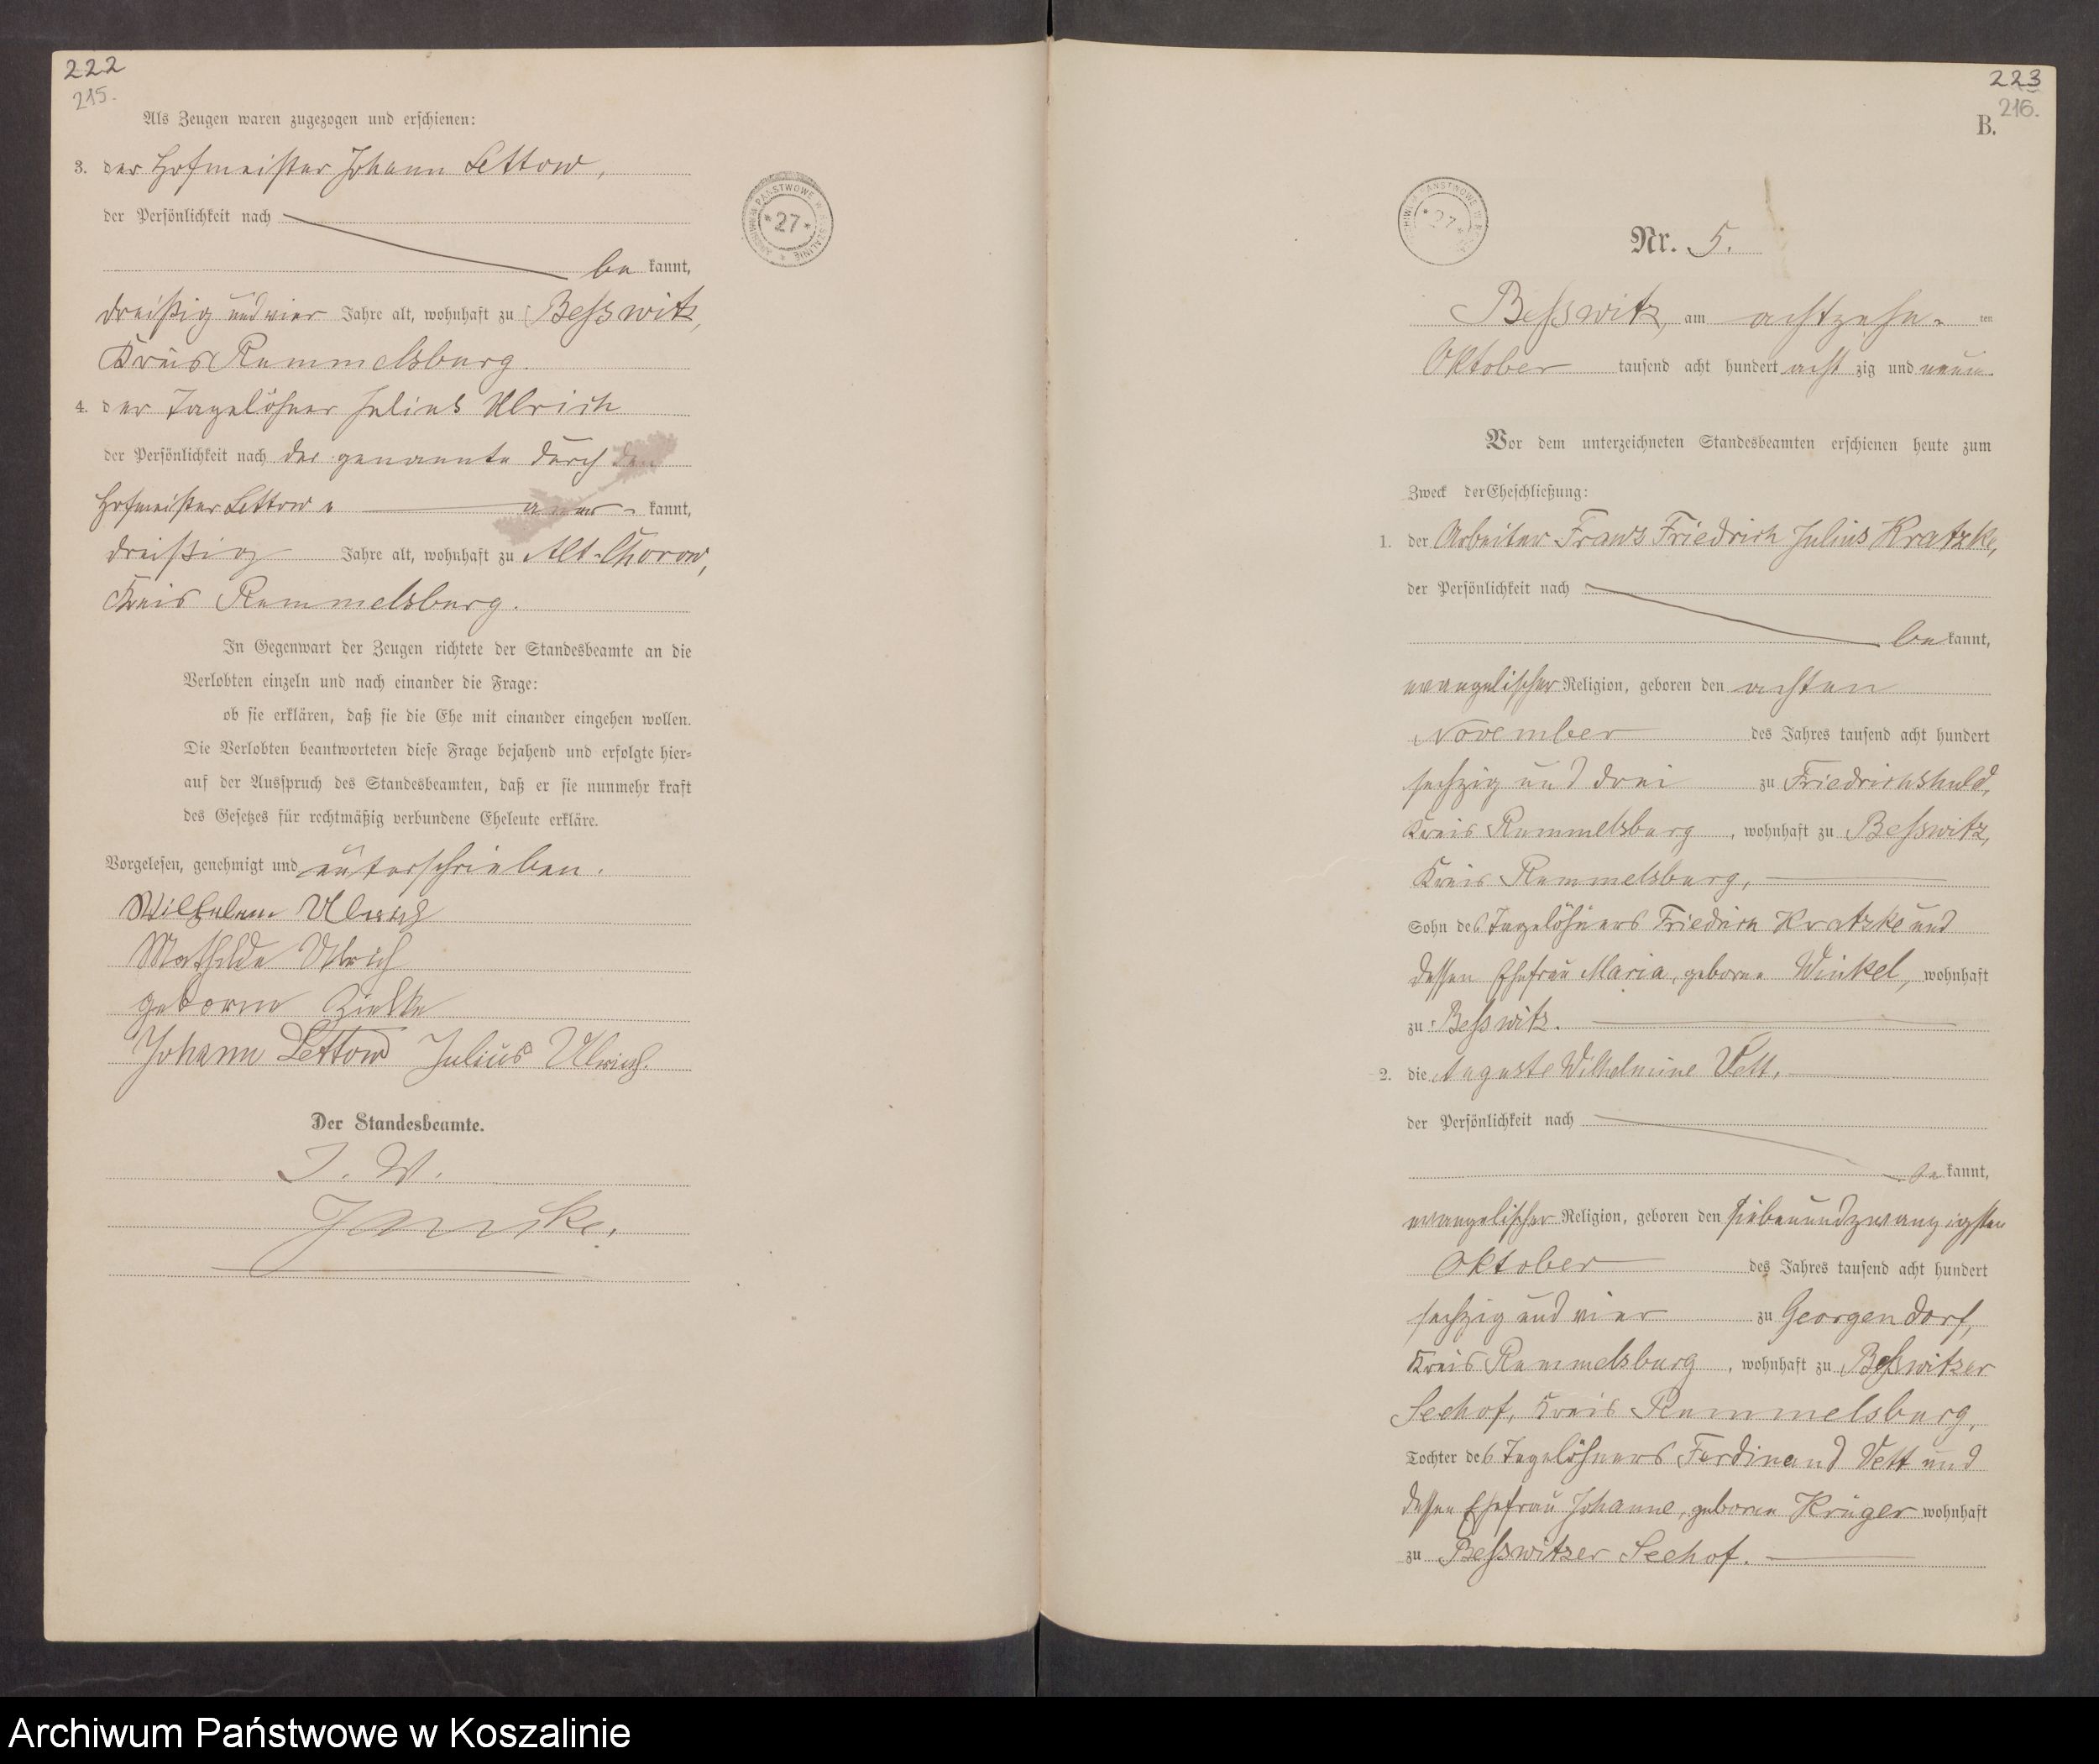 222
215.
Als Zeugen waren zugezogen und erschienen:
3. der Hofmeister Johann Lettow,
der Persönlichkeit nach
be kannt,
dreißig und vier Jahre alt, wohnhaft zu Besswitz,
Kreis Rummelsburg.
4. der Tagelöhner Julius Ulrich
der Persönlichkeit nach der genannte durch den
Hofmeister Lettow aner- kannt,
dreißig Jahre alt, wohnhaft zu Alt-Chorow,
Kreis Rummelsburg.
In Gegenwart der Zeugen richtete der Standesbeamte an die
Verlobten einzeln und nach einander die Frage:
ob sie erklären, daß sie die Ehe mit einander eingehen wollen.
Die Verlobten beantworteten diese Frage bejahend und erfolgte hier-
auf der Ausspruch des Standesbeamten, daß er sie nunmehr kraft
des Gesetzes für rechtmäßig verbundene Eheleute erkläre.
Vorgelesen, genehmigt und unterschrieben.
Wilhelm Ulrich
Mathilde Ulrich
geborne Zielke
Johann Lettow Julius Ulrich.
Der Standesbeamte.
I. V.
Janike.
ARCHIWUM PAŃSTWOWE W KOSZALINIE
* 27 *
223
216.
B.
ARCHIWUM PAŃSTWOWE W KOSZALINIE
* 27 *
Nr. 5.
Besswitz, am achtzehn- ten
Oktober tausend acht hundert acht zig und neun.
Vor dem unterzeichneten Standesbeamten erschienen heute zum
Zweck der Eheschließung:
1. der Arbeiter Franz Friedrich Julius Kratzke,
der Persönlichkeit nach
be kannt,
evangelischer Religion, geboren den achten
November des Jahres tausend acht hundert
sechzig und drei zu Friedrichshuld,
Kreis Rummelsburg, wohnhaft zu Besswitz,
Kreis Rummelsburg,
Sohn des Tagelöhners Friedrich Kratzke und
dessen Ehefrau Maria, geborne Winkel, wohnhaft
zu Besswitz.
2. die Auguste Wilhelmine Vett,
der Persönlichkeit nach
be kannt,
evangelischer Religion, geboren den siebenundzwanzigsten
Oktober des Jahres tausend acht hundert
sechzig und vier zu Georgendorf,
Kreis Rummelsburg, wohnhaft zu Besswitzer
Seehof, Kreis Rummelsburg,
Tochter des Tagelöhners Ferdinand Vett und
dessen Ehefrau Johanne, geborne Krüger wohnhaft
zu Besswitzer Seehof.
Archiwum Państwowe w Koszalinie